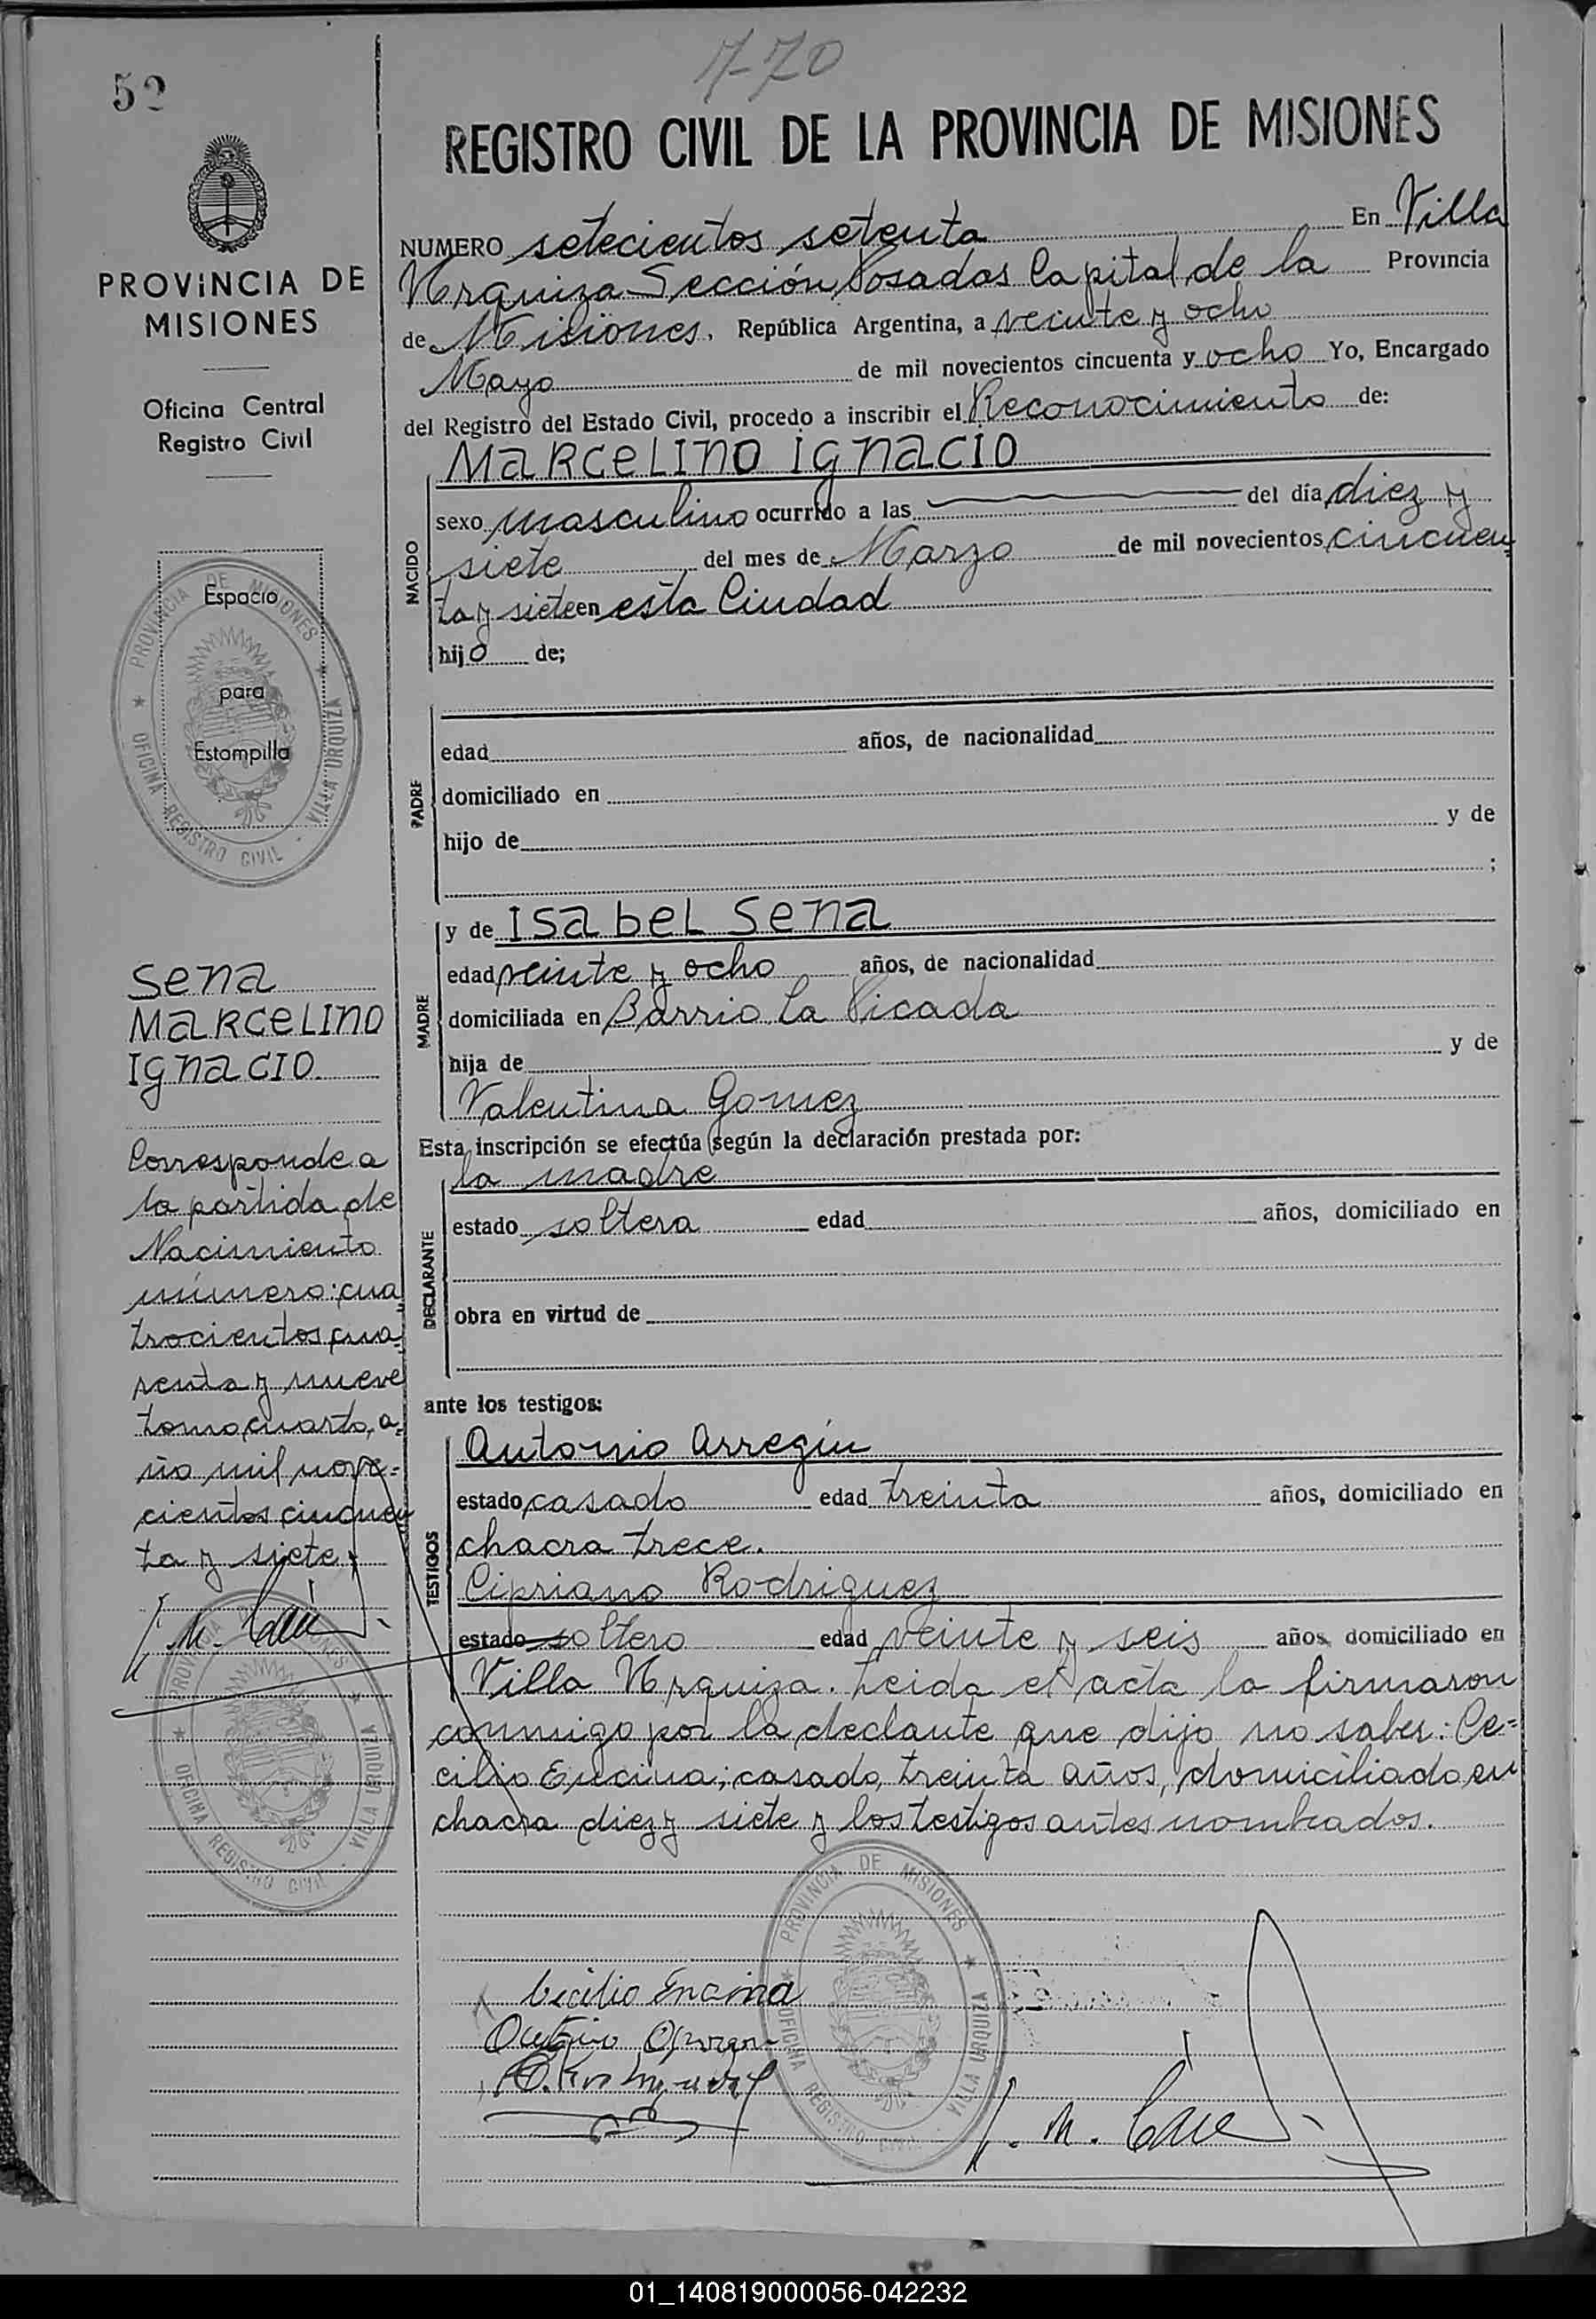 7-70
52
REGISTRO CIVIL DE LA PROVINCIA DE MISIONES
PROVINCIA DE
MISIONES
Oficina Central
Registro Civil
Espacio
para
Estampilla
PROVINCIA DE MISIONES
OFICINA REGISTRO CIVIL - VILLA URQUIZA
Sena
Marcelino
Ignacio.
Corresponde a
la partida de
Nacimiento
número: cua
trocientos cua-
renta y nueve
tomo cuarto, a-
ño mil nove=
cientos cincuen
ta y siete.
PROVINCIA DE MISIONES
OFICINA REGISTRO CIVIL - VILLA URQUIZA
NUMERO setecientos setenta En Villa
Urquiza Sección Posadas Capital de la Provincia
de Misiones, República Argentina, a veinte y ocho
Mayo de mil novecientos cincuenta y ocho Yo, Encargado
del Registro del Estado Civil, procedo a inscribir el Reconocimiento de:
NACIDO
Marcelino Ignacio
sexo masculino ocurrido a las del día diez y
siete del mes de Marzo de mil novecientos cincuen
ta y siete en esta Ciudad
hijo de;
PADRE
edad años, de nacionalidad
domiciliado en
hijo de y de
;
MADRE
y de Isabel Sena
edad veinte y ocho años, de nacionalidad
domiciliada en Barrio La Picada
hija de y de
Valentina Gomez
Esta inscripción se efectúa según la declaración prestada por:
DECLARANTE
la madre
estado soltera edad años, domiciliado en
obra en virtud de
ante los testigos:
TESTIGOS
Antonio Arregin
estado casado edad treinta años, domiciliado en
chacra trece.
Cipriano Rodriguez
estado soltero edad veinte y seis años, domiciliado en
Villa Urquiza. Leida el acta la firmaron
conmigo por la declante que dijo no saber: Ce=
cilio Encina; casado, treinta años, domiciliado en
chacra diez y siete y los testigos antes nombrados.
PROVINCIA DE MISIONES
OFICINA REGISTRO CIVIL - VILLA URQUIZA
Cecilio Encina
01_140819000056-042232